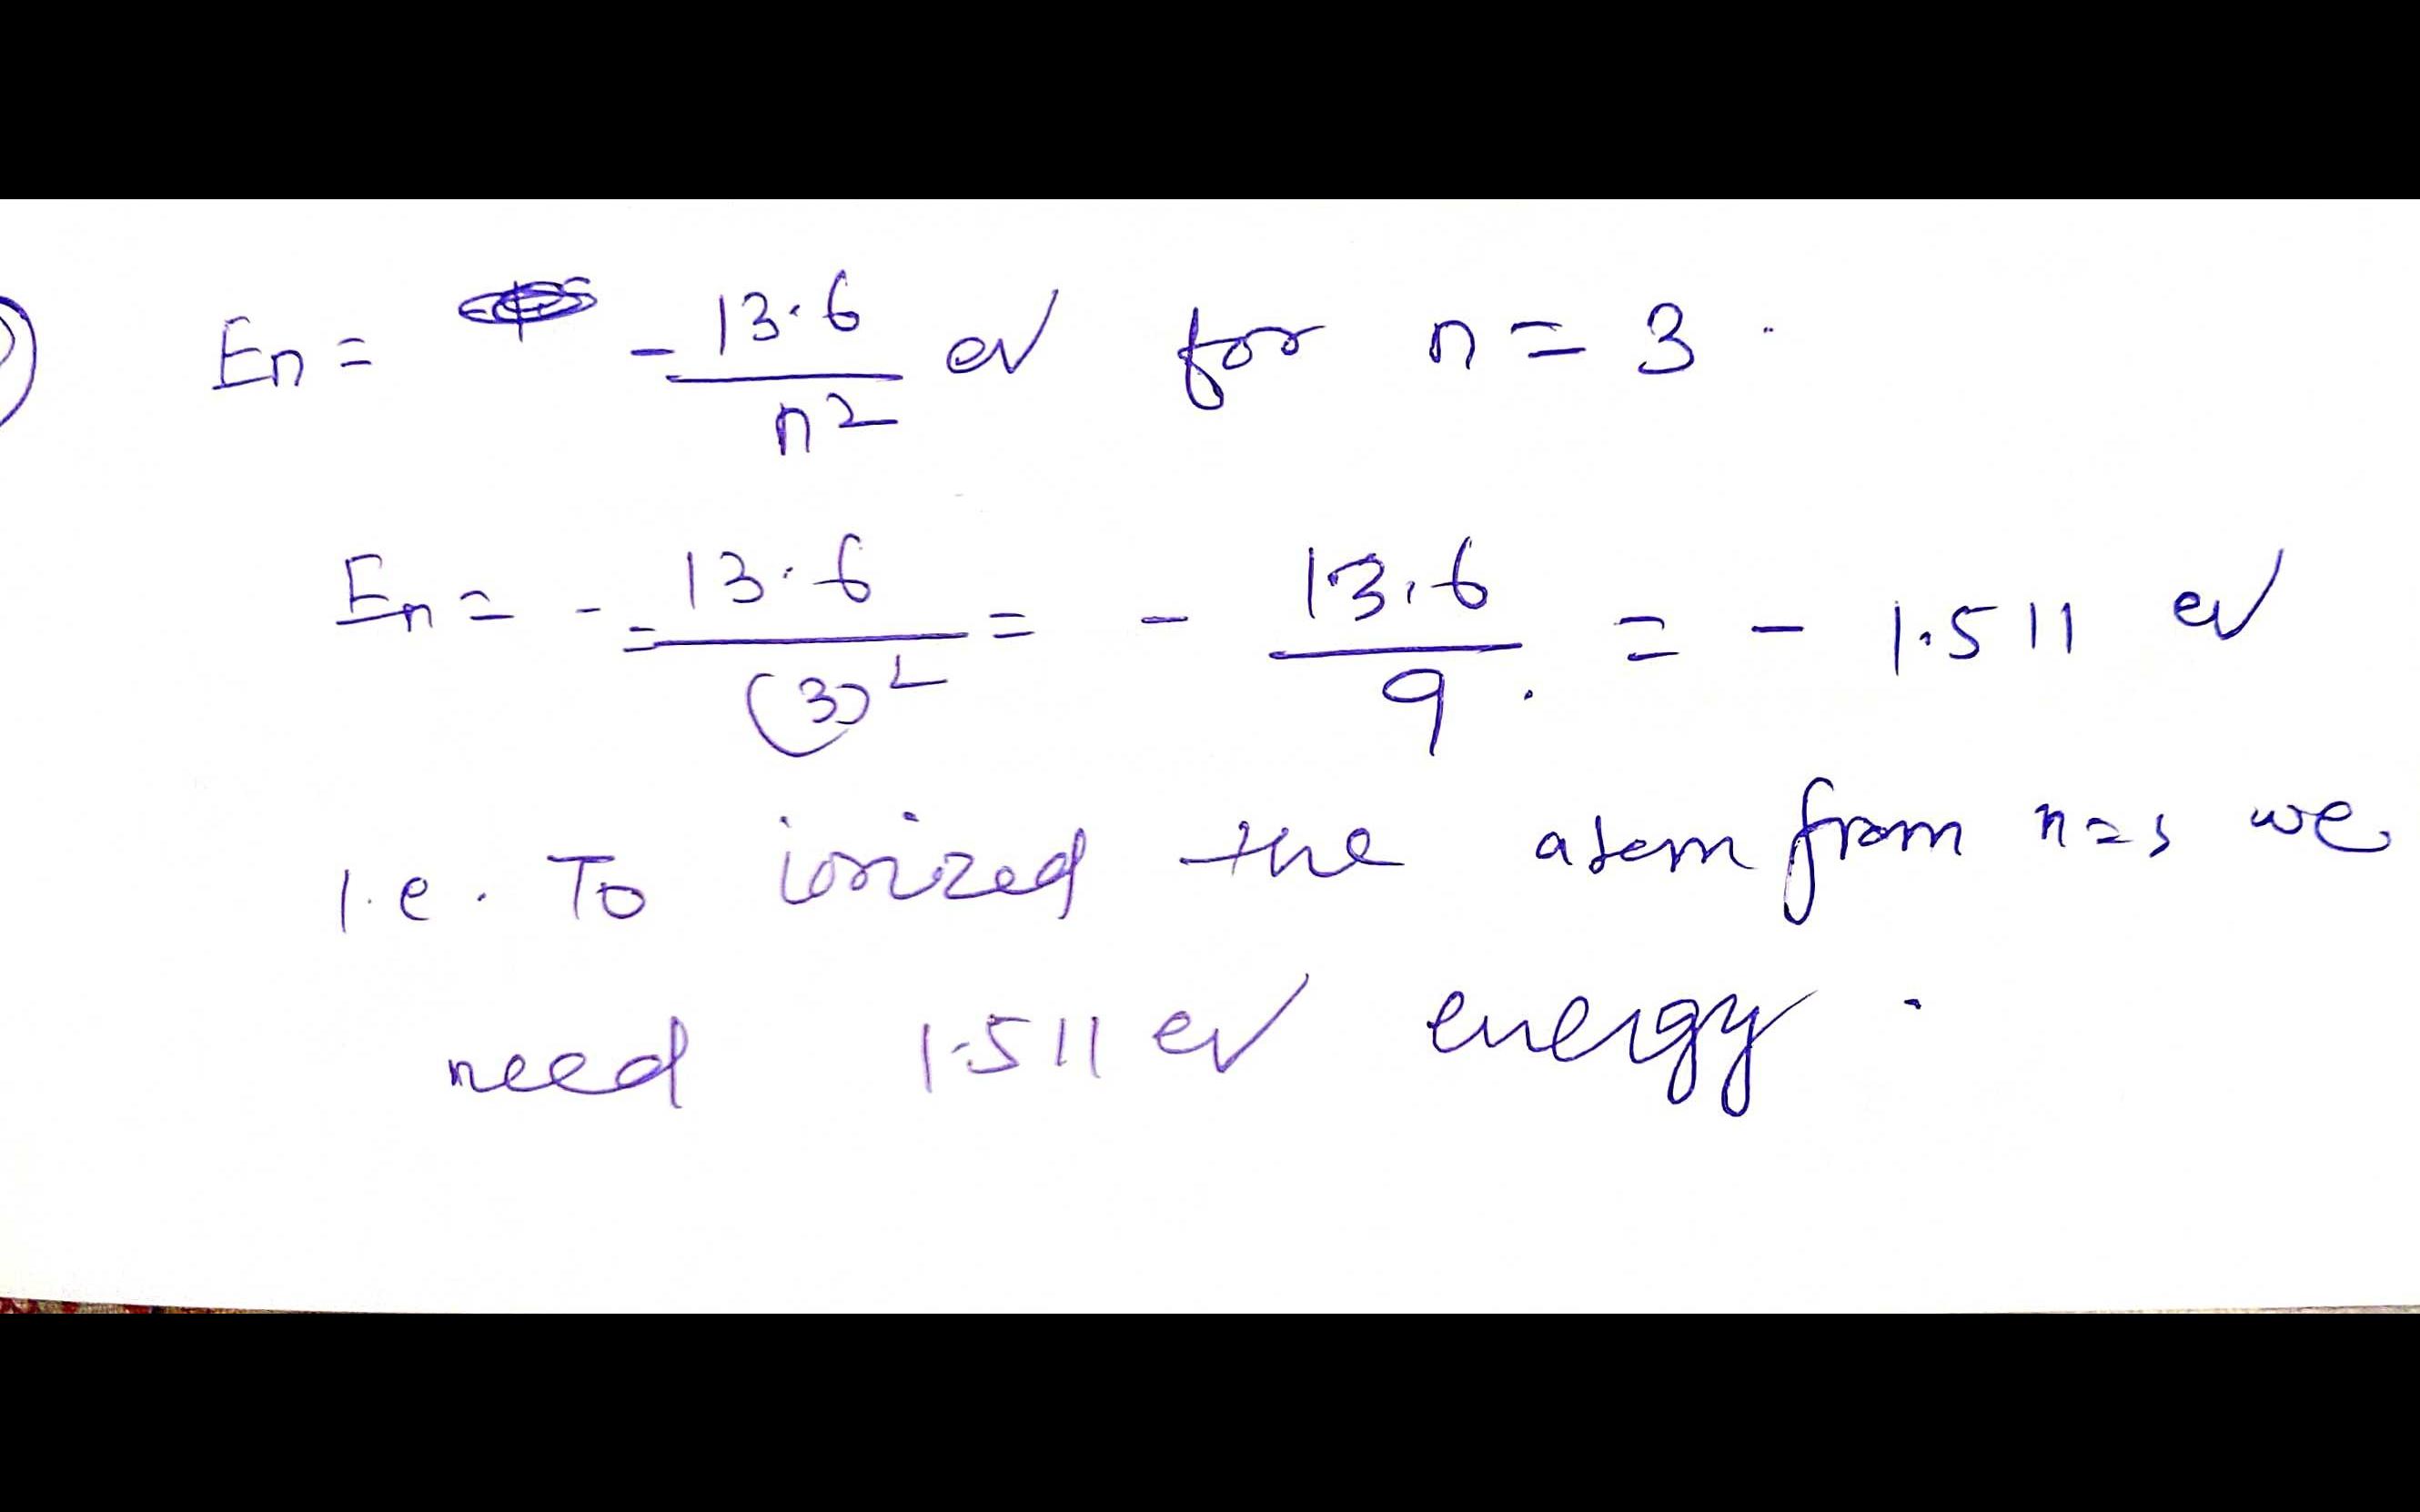 En = - 13.6 / n² ev for n = 3.
En = - 13.6 / (3)² = - 13.6 / 9. = - 1.511 ev
1.e. To ionized the atom from n=3 we
need 1.511 ev energy.